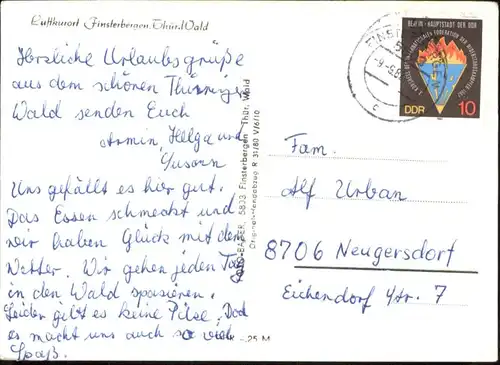 Luftkurort Finsterbergen, Thür. Wald
Herzliche Urlaubsgrüße
aus dem schönen Thüringer
Wald senden Euch
Armin, Helga und
Susann
Uns gefällt es hier gut.
Das Essen schmeckt und
wir haben Glück mit dem
Wetter. Wir gehen jeden Tag
in den Wald spazieren.
Leider gibt es keine Pilze. Dod
es macht uns auch so viel
Spaß.
5803 Finsterbergen Thür. Wald
R 31/80 V/6/10
-25 M
BERLIN - HAUPTSTADT DER DDR
DDR 10
Fam.
Alf Urban
8706 Neugersdorf
Eichendorf Str. 7